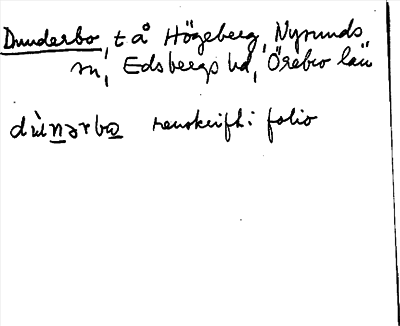 Dunderbo, t å Högeberg, Nysunds
sn, Edsbergs hd, Örebro län
dùnərbo renskrift i folio